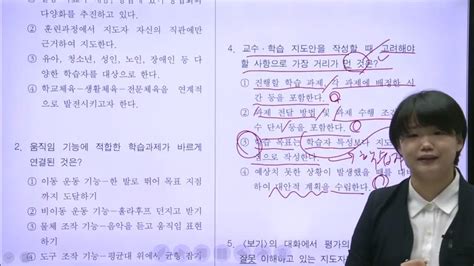 다양화를 추진하고 있다.
② 훈련과정에서 지도자 자신의 직관에만
근거하여 지도한다.
③ 유아, 청소년, 성인, 노인, 장애인 등 다
양한 학습자를 대상으로 한다.
④ 학교체육-생활체육-전문체육을 연계적
으로 발전시키고자 한다.
2. 움직임 기능에 적합한 학습과제가 바르게
연결된 것은?
① 이동 운동 기능-한 발로 뛰어 목표 지점
까지 도달하기
② 비이동 운동 기능-훌라후프 던지고 받기
③ 물체 조작 기능-음악을 듣고 움직임 표현
하기
④ 도구 조작 기능-평균대 위에서 균형 잡기
4. 교수·학습 지도안을 작성할 때 고려해야
할 사항으로 가장 거리가 먼 것은?
① 진행할 학습 과제, 각 과제에 배정한 시
간 등을 포함한다.
② 과제 전달 방법 및 과제 수행 조건
수 단서 등을 포함한다.
③ 학습 목표는 학습자 특성보다 지도
점으로 작성한다.
④ 예상치 못한 상황이 발생했을 때를 대
하여 대안적 계획을 수립한다.
5. 〈보기〉의 대화에서 평가의
잘못 이해하고 있는 지도자